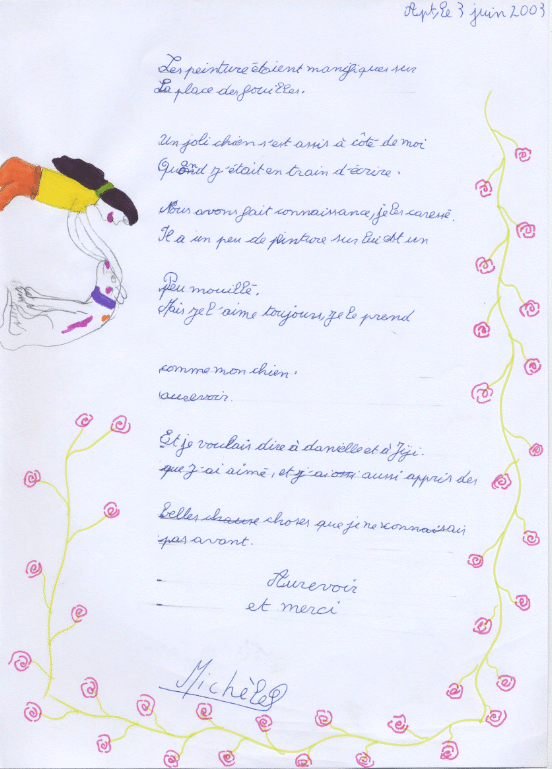 Apt, le 3 juin 2003
Les peinture étaient manifiques sur
La place des fouilles.
Un joli chien s'est assis à côté de moi
Quand j'était en train d'écrire.
Nous avons fait connaissance, je l'es caressé.
Il a un peu de pinture sur lui et un
Peu mouillé.
Mais je l'aime toujours, je le prend
comme mon chien.
aurevoir.
Et je voulais dire à danielle et à Jiji.
que j'ai aimé, et j'ai aussi appris des
choses que je ne connaissais
pas avant.
Aurevoir
et merci
Michèle